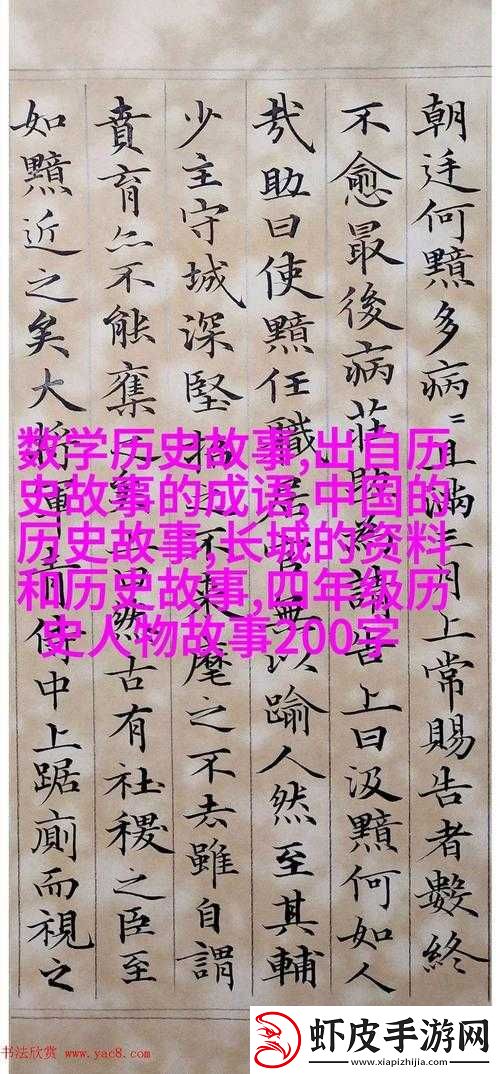 朝廷何黯多病〻且滿三月上常賜告者數終
不愈最後病莊助為請告上曰汲黯何如人
哉助曰使黯任職居官無以踰人然至其輔
少主守城深堅招之不來麾之不去雖自謂
賁育亦不能奪之矣上曰然古有社稷之臣至
如黯近之矣大將軍青侍中上踞廁而視之
数学历史故事,出自历
史故事的成语,中国的
历史故事,长城的资料
和历史故事,四年级历
史人物故事200字
书法欣赏 www.yac8.com
虾皮手游网
www.xiapizhijia.com